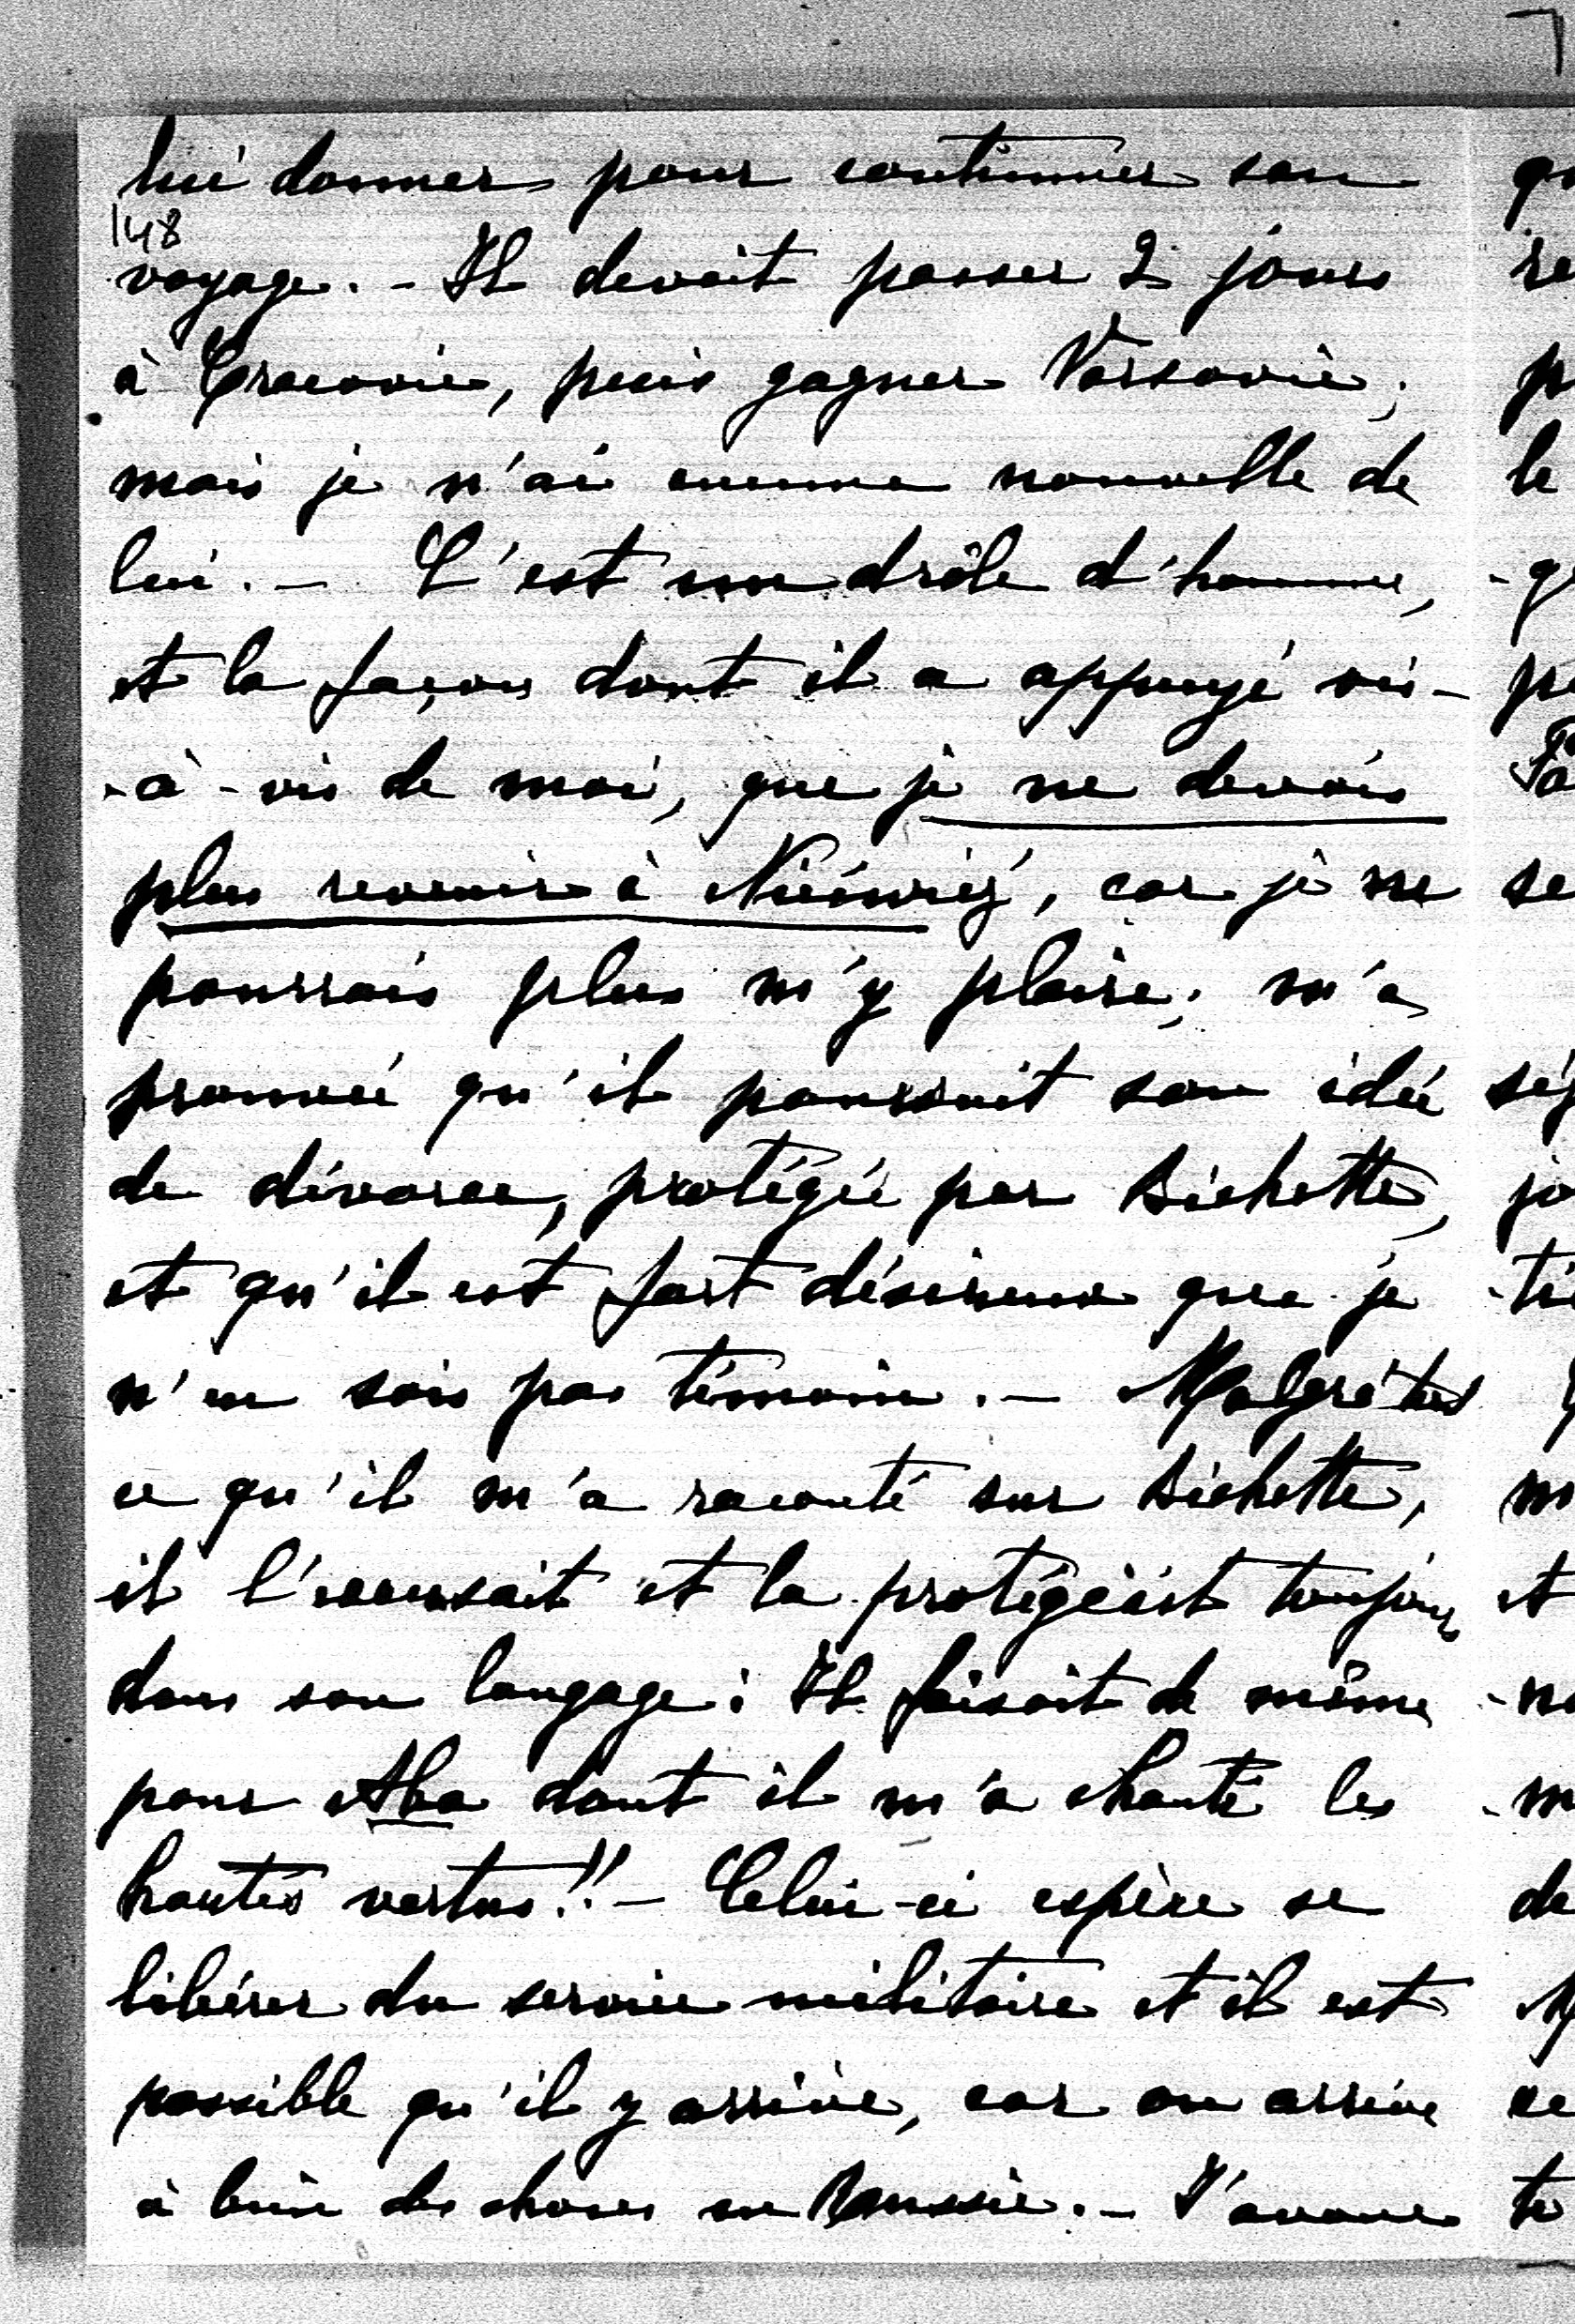 lui donner pour continuer son
148
voyage. - Il devait passer 2 jours
à Cracovie, puis gagner Varsovie;
mais je n'ai aucune nouvelle de
lui. - C'est un drôle d'homme,
et la façon dont il a appuyé vis-
-à-vis de moi, que je ne devais
plus revenir à Niéswiéz, car je ne
pourrais plus m'y plaire; m'a
prouvé qu'il poursuit son idée
de divorce, protégée par Bichette,
et qu'il est fort désireux que je
n'en sois pas témoin. - Malgré tout
ce qu'il m'a raconté sur Bichette,
il l'excusait et la protégeait toujours
dans son langage: Il faisait de même
pour Aba dont il m'a chanté les
hautes vertus!! - Celui-ci espère se
libérer du service militaire et il est
possible qu'il y arrive, car on arrive
à bien des choses en Russie. - J'avoue